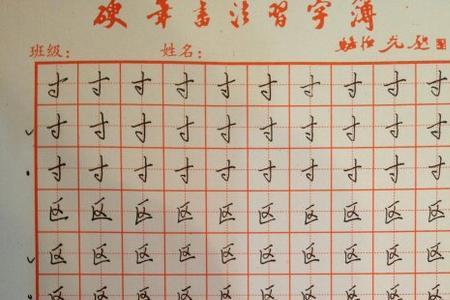 硬笔书法习字簿
班级： 姓名：
寸寸寸寸寸寸寸寸寸寸
寸寸寸寸寸寸寸寸寸寸
寸寸寸寸寸寸寸寸寸寸
区区区区区区区区区区
区区区区区区区区区区
区区区区区区区区区区